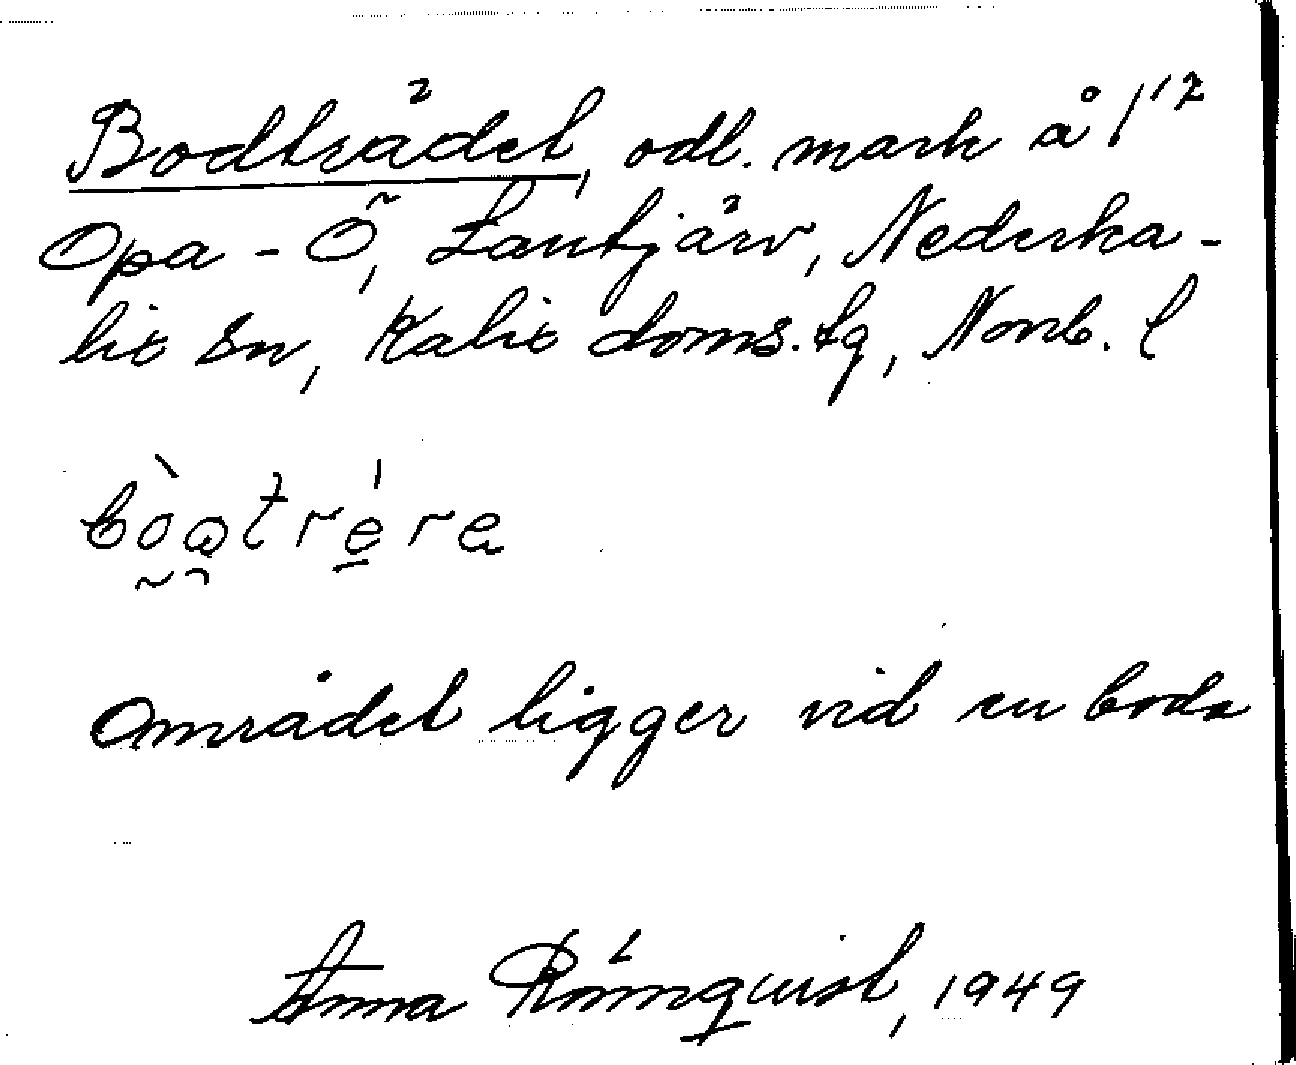 Bodträdet, odl. mark å 1¹²
Opa-Ö, Lantjärv, Nederka-
lix sn, Kalix doms.tg, Norrb. l
bòatrére
Området ligger vid en boda
Anna Römquist, 1949